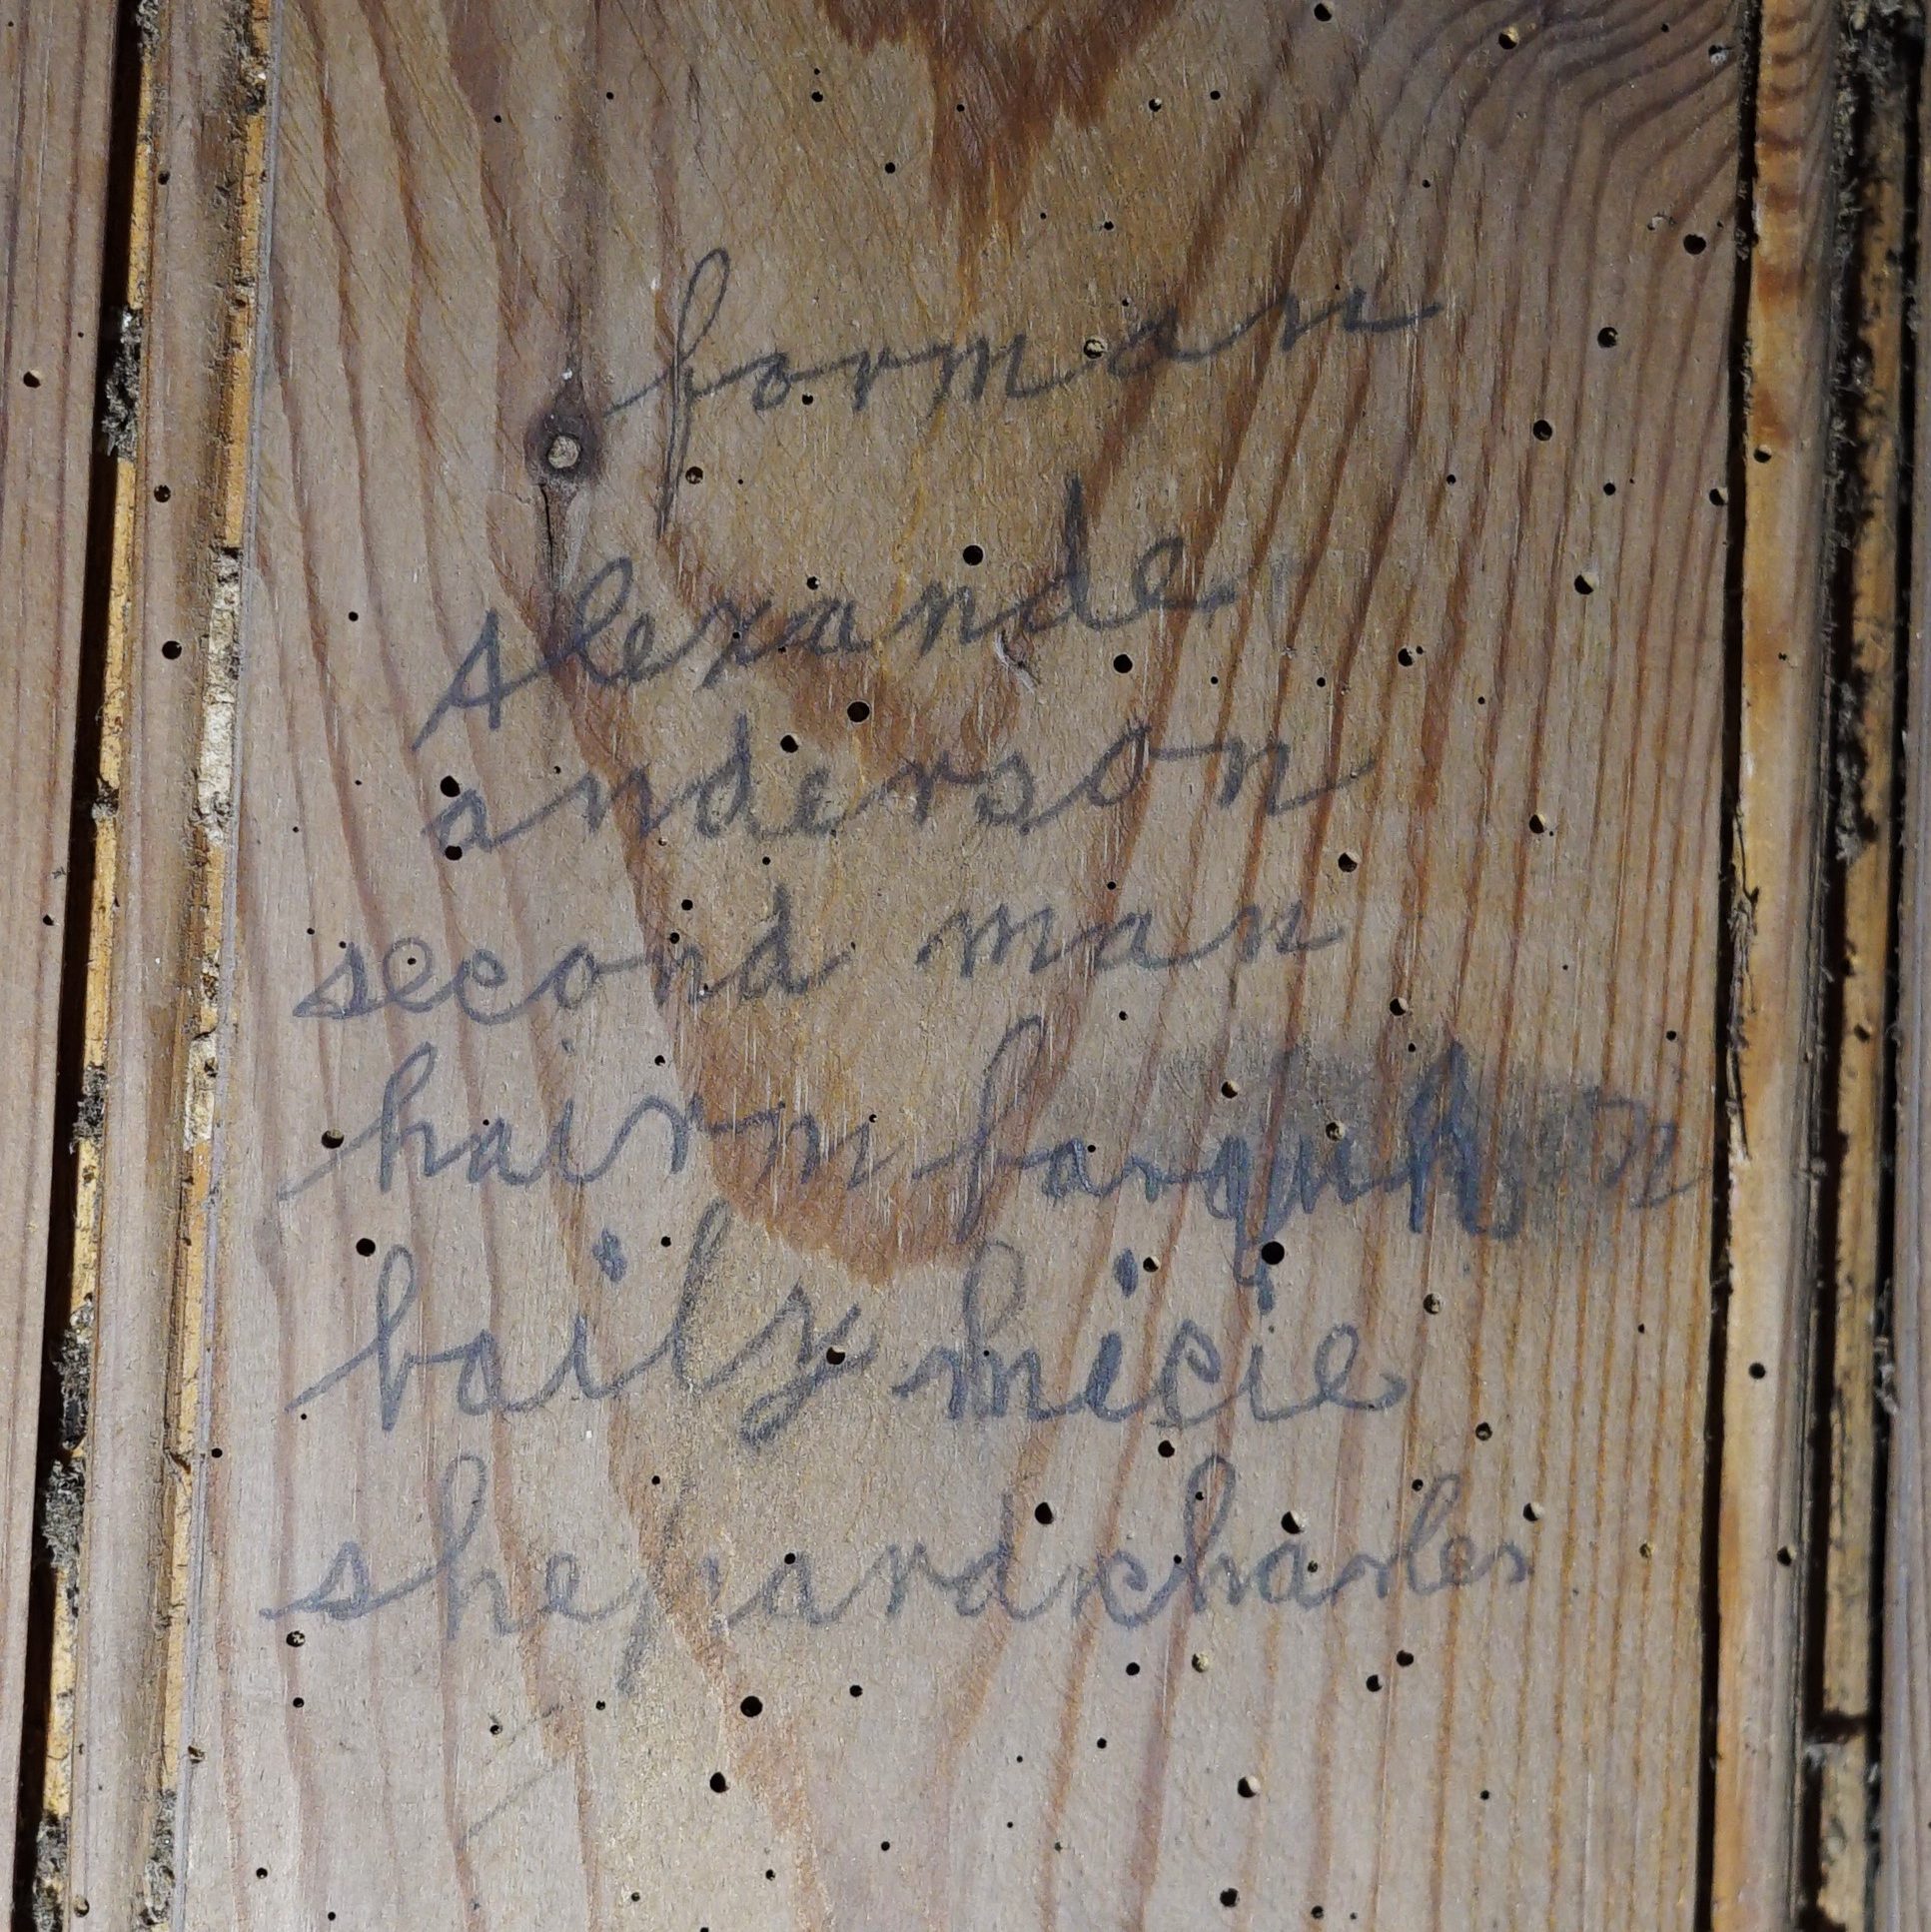 forman
Alexande
anderson
second man
hairm farquh n
baily micie
shepard charles